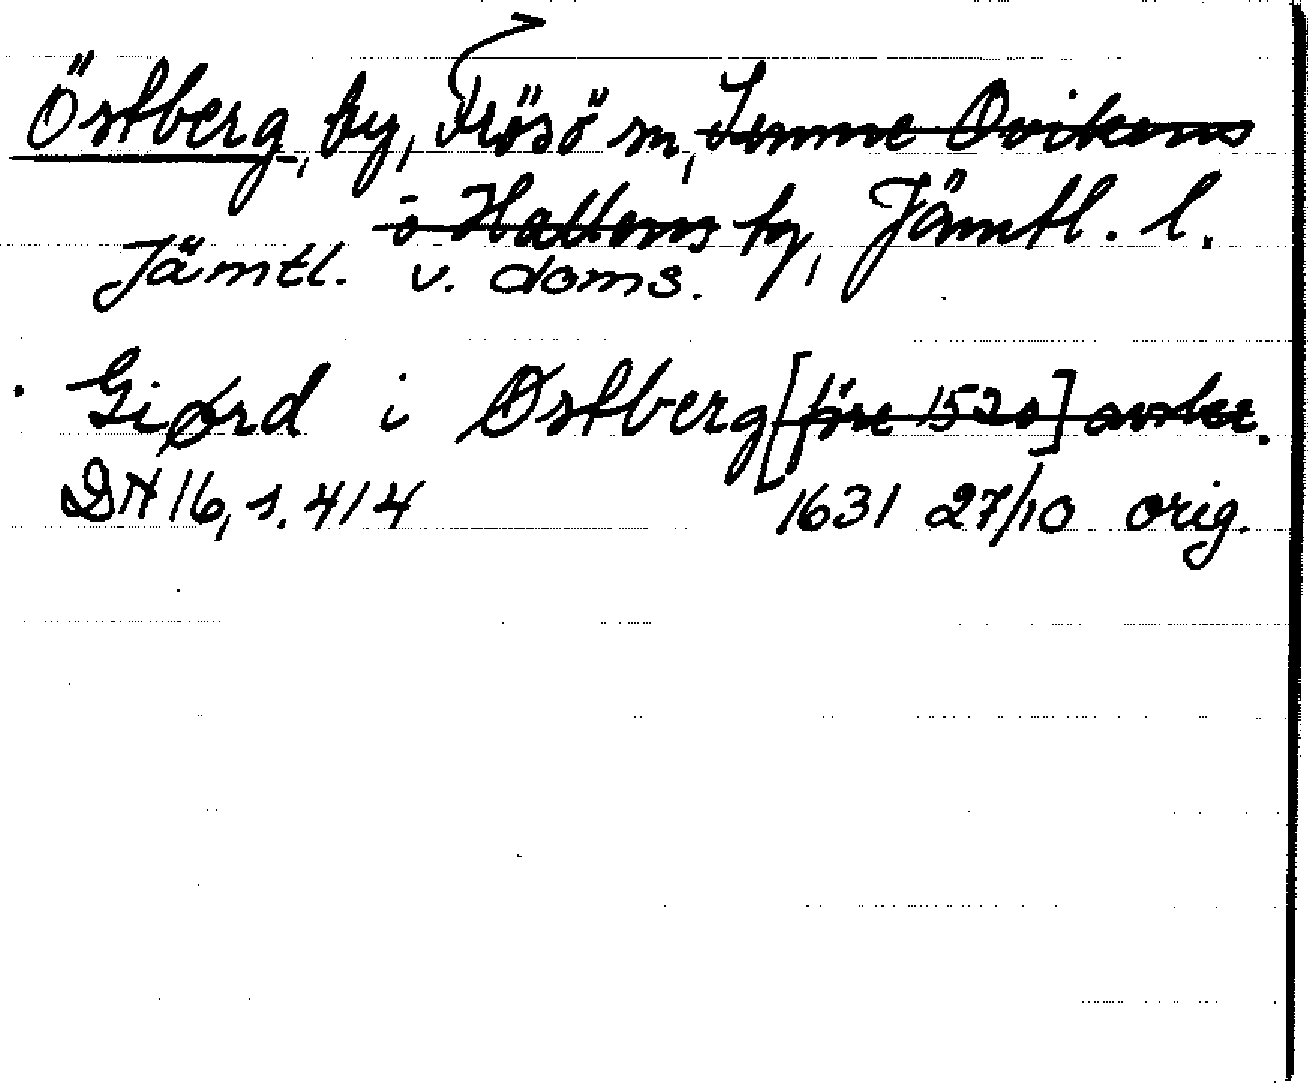 Östberg, by, Frösö sn, Sunne Ovikens
o Hallens tg, Jämtl. l.
Jämtl. v. doms.
Giørd i Østberg [före 1520] avskr.
DN 16, s. 414 1631 27/10 orig.